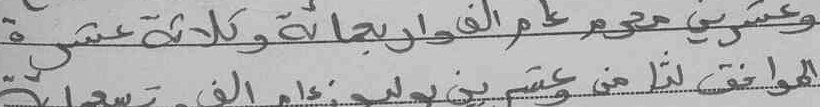 وعشرين محرم عام الف واربعمائة وثلاثة عشرة
الموافق لثامن وعشرين يوليو عام الف وتسعمائة